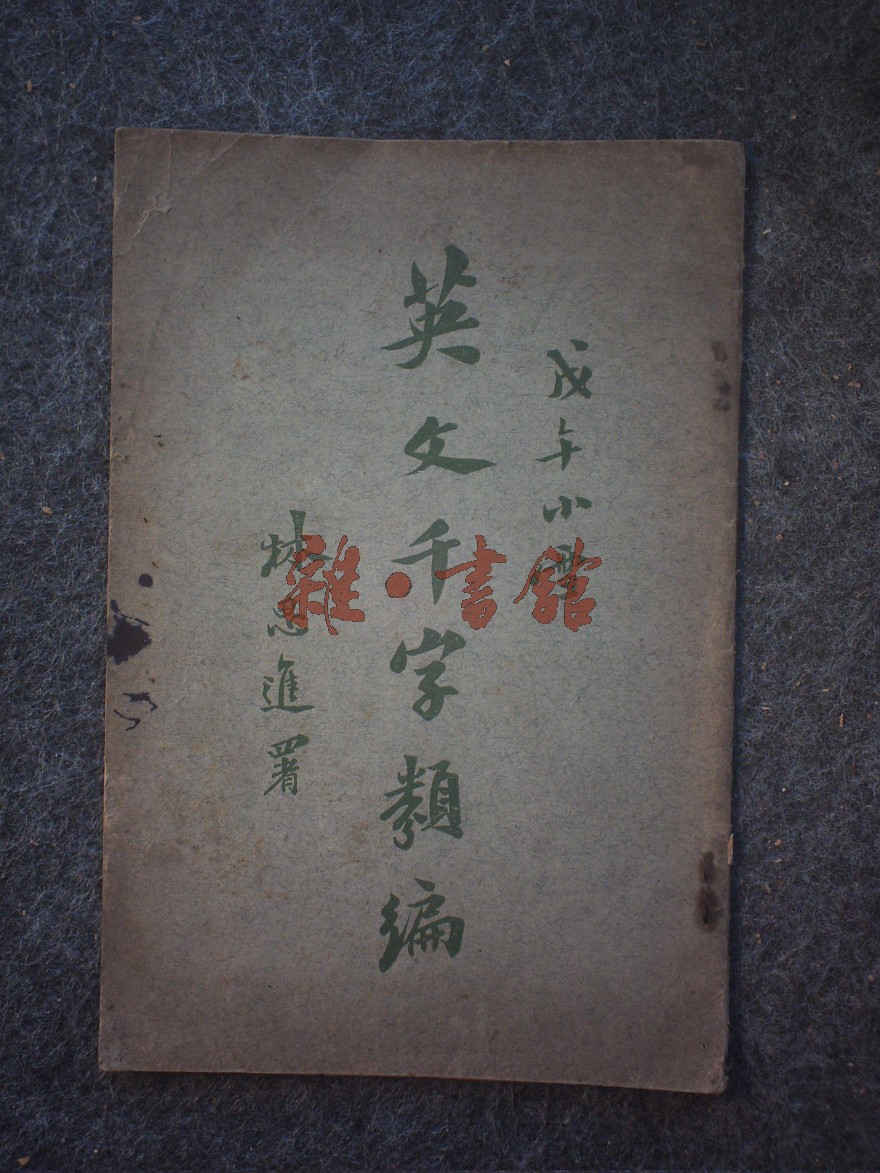 戊午小
英文千字類編
林思進署
雜·書館